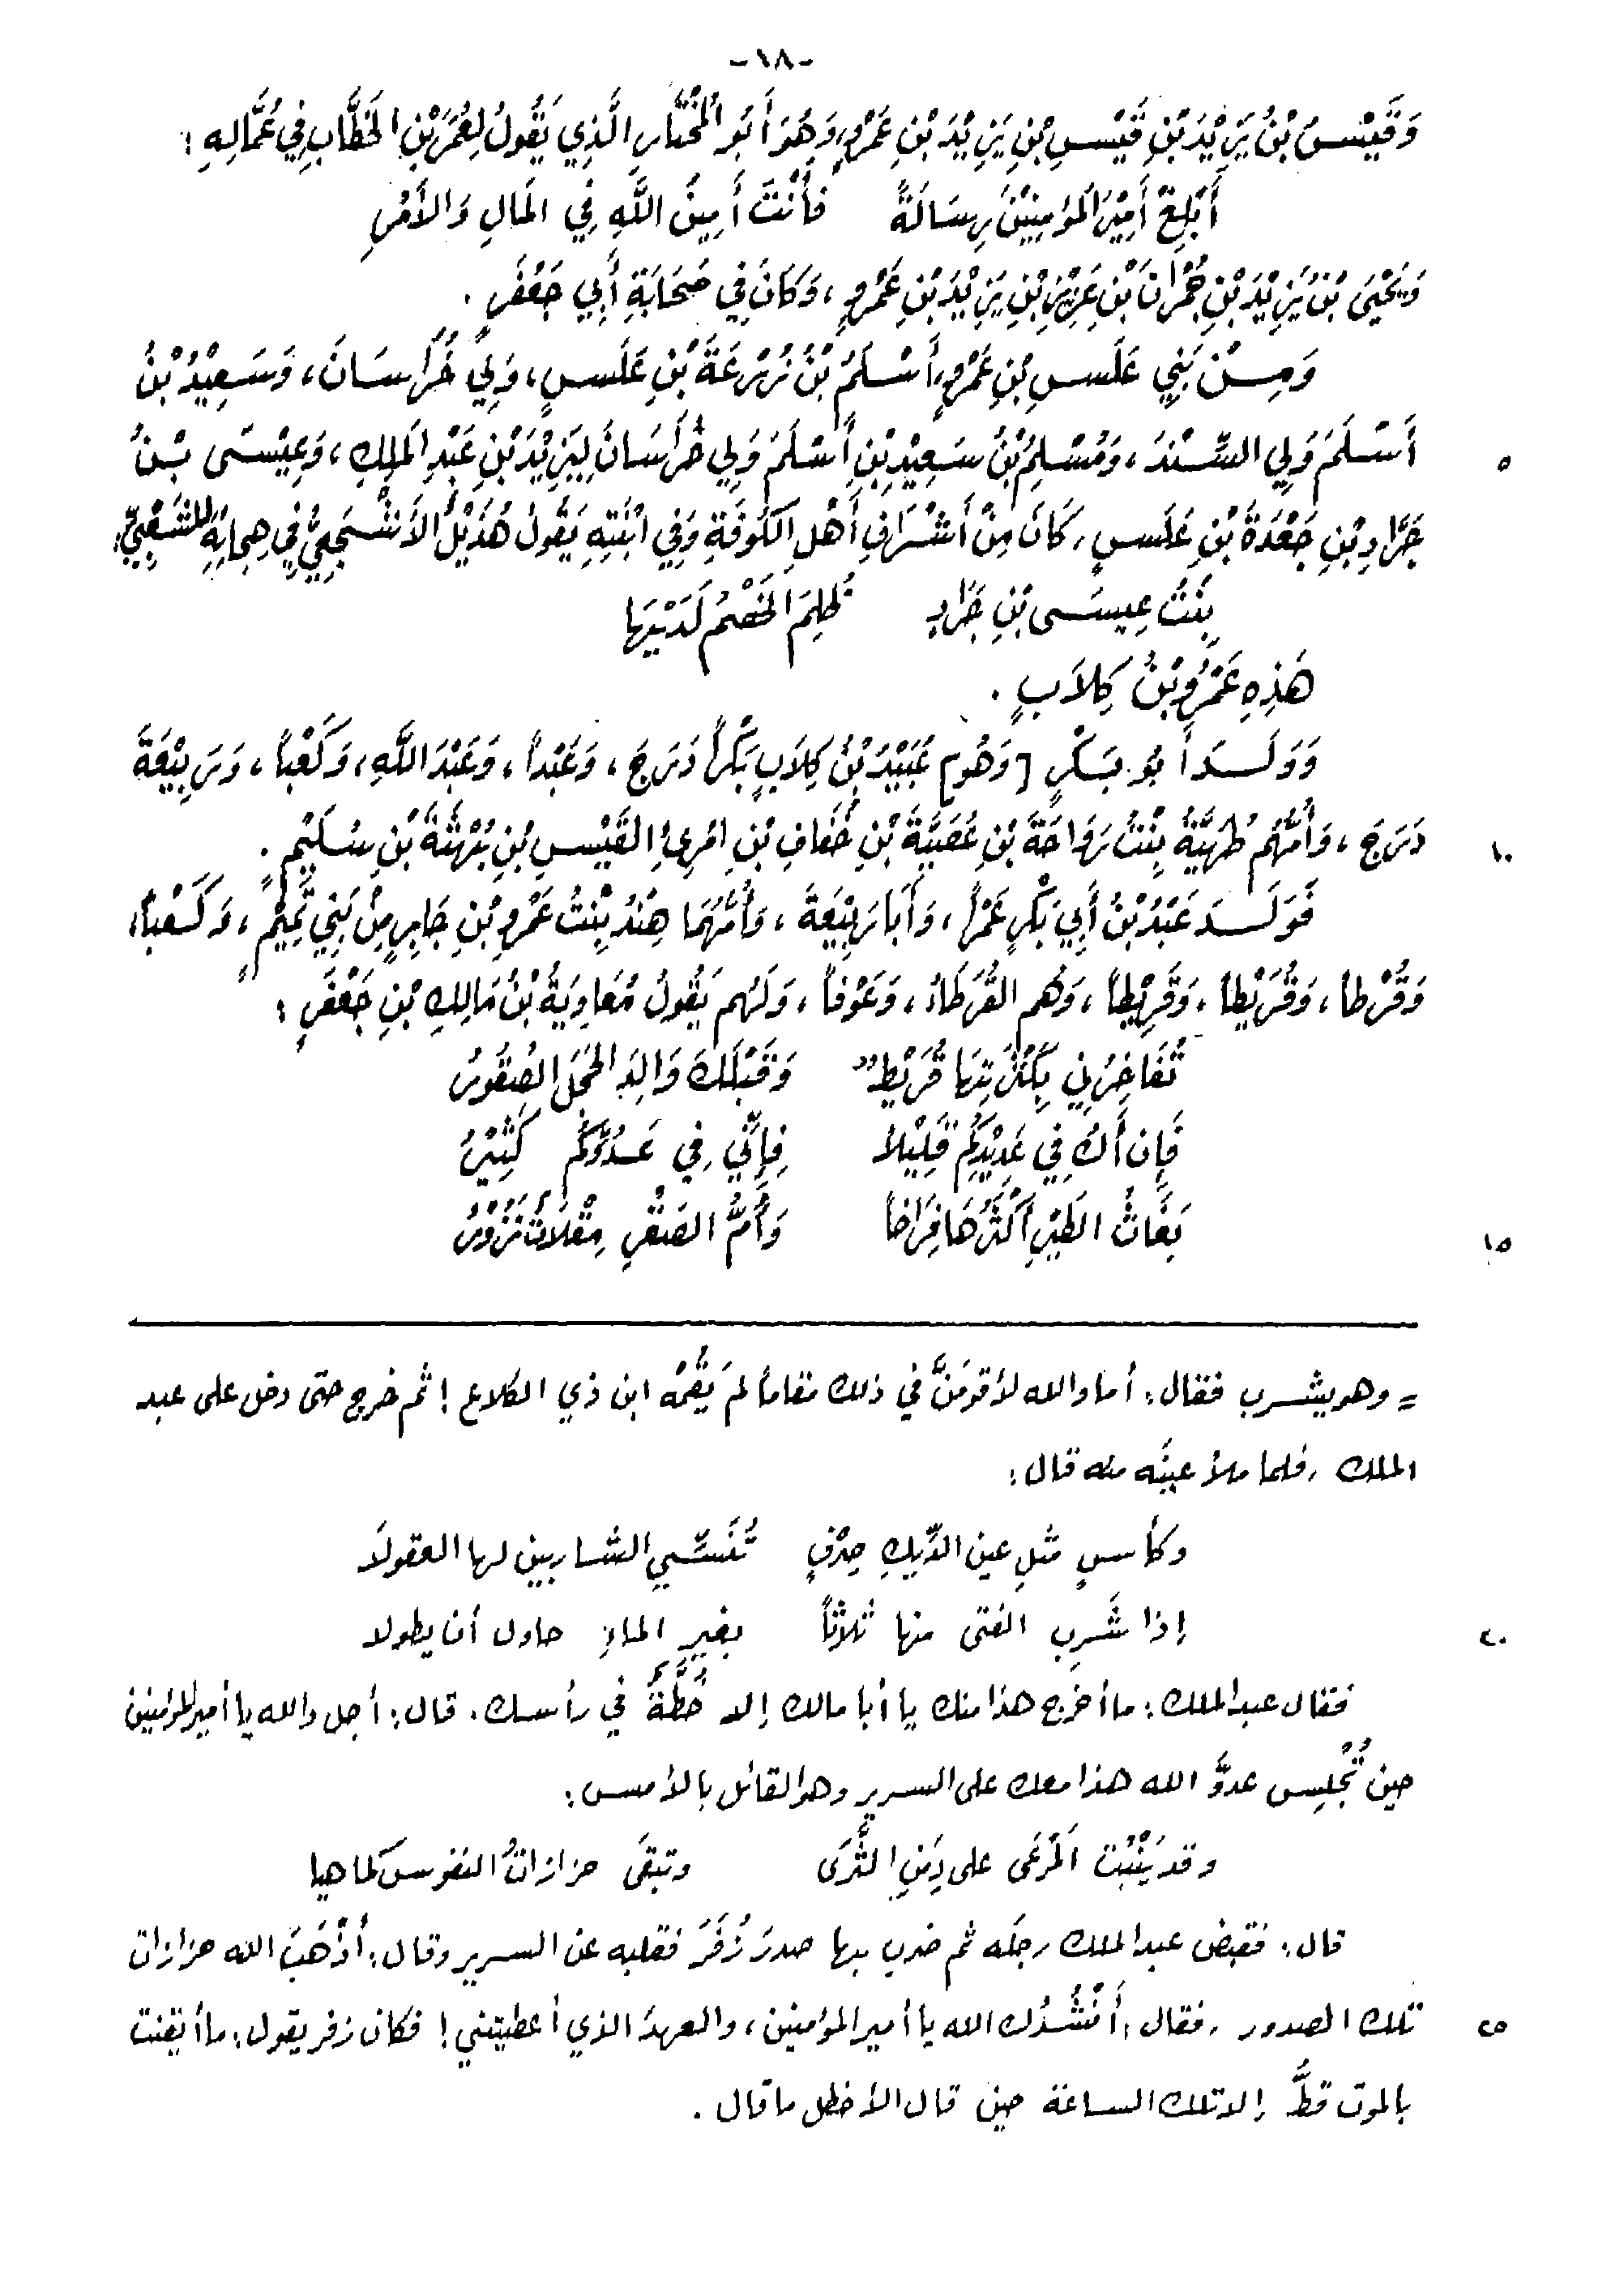 -١٨-
وَقَيْسُ بْنُ يَزِيْدَ بْنِ قَيْسِ بْنِ يَزِيْدَ بْنِ عَمْرٍو، وَهُوَ أَبُو الْمُخْتَارِ الَّذِي يَقُولُ لِعُمَرَ بْنِ الخَطَّابِ فِي عُمَّالِهِ :
أَبْلِغْ أَمِيْرَ المُؤمِنِيْنَ رِسَالَةً فأَنْتَ أَمِينُ اللَّهِ فِي المَالِ وَالأَمْرِ
وَيَحْيَى بْنُ يَزِيْدَ بْنِ حُمْرَانَ بْنِ عَزِيْزِ بْنِ يَزِيْدَ بْنِ عَمْرٍو ، وَكَانَ فِي صَحَابَةِ أَبِي جَعْفَرٍ .
وَمِنْ بَنِي عَلَسِ بْنِ عَمْرٍو، أَسْلَمُ بْنُ زُرْعَةَ بْنِ عَلَسٍ، وَلِيَ خُرَاسَانَ، وَسَعِيْدُ بْنُ
أَسْلَمَ وَلِي السِّنْدَ ، وَمُسْلِمُ بْنُ سَعِيْدِ بْنِ أَسْلَمَ وَلِي خُرَاسَانَ لِيَزِيْدَ بْنِ عَبْدِ المَلِكِ ، وَعِيْسَى بْنُ ٥
جَرَادِ بْنِ جَعْدَةَ بْنِ عَلَسٍ ، كَانَ مِنْ أَشْرَافِ أَهْلِ الكُوفَةِ وَفِي ابْنَتِهِ يَقُولُ هُذَيْلُ الأَشْجَعِيُّ فِي هِجَائِهِ لِلشَّعْبِيِّ:
بِنْتُ عِيسَى بْنِ جَرَادٍ ظُلِمَ الخَصْمُ لَدَيْهَا
هَذِهِ عَمْرُو بْنُ كِلاَبٍ .
وَوَلَدَ أَبُو بَكْرٍ [وَهُو] عُبَيْدُ بْنُ كِلاَبٍ بَكْراً دَرَجَ ، وَعَبْداً ، وَعَبْدَ اللَّهِ ، وَكَعْباً ، وَرَبِيْعَةَ
دَرَجَ ، وَأُمُّهُم طُهَيَّةُ بِنْتُ رَوَاحَةَ بْنِ عُصَيَّةَ بْنِ خُفَافِ بْنِ امْرِئِ القَيْسِ بْنِ بُهْثَةَ بْنِ سُلَيْمٍ . ١٠
فَوَلَدَ عَبْدُ بْنُ أَبِي بَكْرٍ عَمْراً ، وَأَبَا رَبِيْعَةَ ، وَأُمُّهُمَا هِنْدُ بِنْتُ عَمْرِو بْنِ جَابِرٍ مِنْ بَنِي تَمِيْمٍ ، وَكَعْباً،
وَقُرْطاً ، وَقُرَيْطاً ، وَقَرِيْطاً ، وَهُم القُرَطَاءُ ، وَعَوْفاً ، وَلَهُم يَقُولُ مُعَاوِيَةُ بْنُ مَالِكِ بْنِ جَعْفَرٍ :
تُفَاخِرُنِي بِكَثْرَتِهَا قُرَيْطٌ وَقَبْلَكَ وَالِدَ الحَجَلَ الصُقُورُ
فَإِن أَكُ فِي عَدِيْدِكُم قَلِيْلاً فإِنِّي فِي عَدُوِّكُم كَثِيْرُ
بَغَاثُ الطَيْرِ أَكْثَرُهَا فِرَاخاً وَأُمُّ الصَقْرِ مِقْلاَتٌ نَزُوْرُ ١٥
= وهو يشرب فقال : أما والله لأقومَنَّ في ذلك مقاماً لم يَقُمْه ابن ذي الكلاع ! ثم خرج حتى دخل على عبد
الملك ، فلما ملأ عينَه منه قال :
وكأسٍ مثلِ عين الدِّيكِ صِرْفٍ تُنَسِّي الشاربين لها العقولاَ
إذا شَرِب الفتى منها ثلاثاً بغيرِ الماءِ حاول أن يطولا ٢٠
فقال عبد الملك : ما أخرج هذا منك يا أبا مالك إلا خُطَّةٌ في رأسك . قال : أجل والله يا أمير المؤمنين
حين تُجْلِس عدوَّ الله هذا معك على السرير وهو القائل بالأمس :
وقد يَنْبُت المَرْعَى على دِمَنِ الثَّرَى وتبقَى حزازاتُ النفوس كما هيا
قال : فقبض عبد الملك رجلَه ثم ضرب بها صدرَ زُفَرَ فقلبه عن السرير وقال : أذْهَبَ الله حزازات
تلك الصدور ، فقال : أَنْشُدُك الله يا أمير المؤمنين ، والعهدَ الذي أعطيتني ! فكان زفر يقول : ما أيقنت ٢٥
بالموت قطُّ إلا تلك الساعة حين قال الأخطل ما قال .